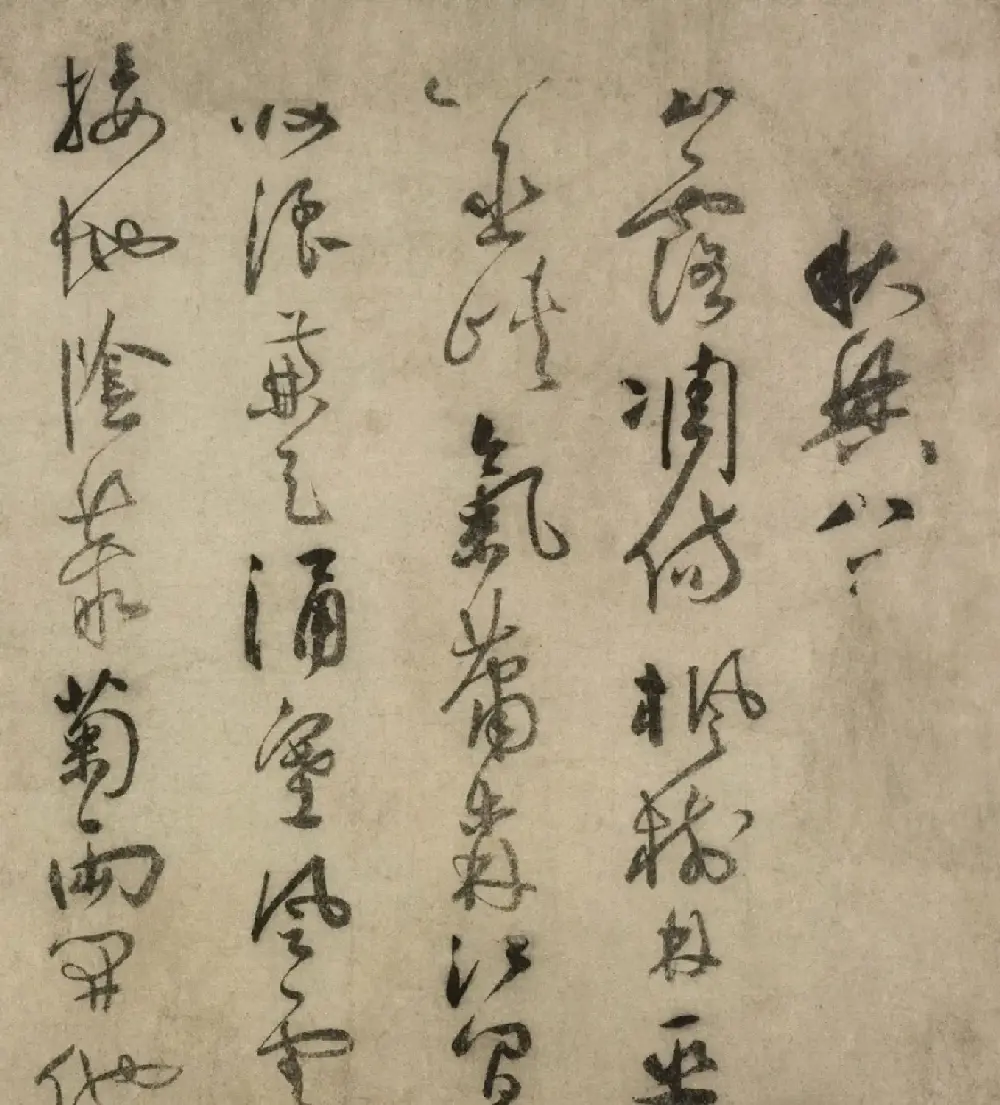 秋興八
玉露凋傷楓樹林巫
山巫峽氣蕭森江間
波浪兼天涌塞風雲
接地陰叢菊兩開他